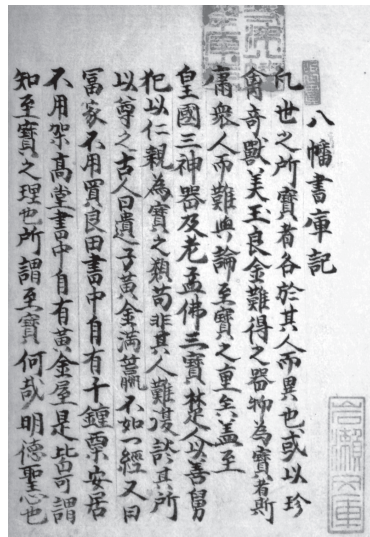 八幡書庫記
凡世之所寶者各於其人而異也或以珍
禽奇獸美玉良金難得之器物為寶者斯
庸衆人而難與論至寶之重矣蓋至
皇國三神器及老孟佛三寶楚人以善舅
犯以仁親為寶之類苟非其人難復談其所
以尊之古人曰遺子黃金滿籯不如一經又曰
冨家不用買良田書中自有千鍾粟安居
不用架高堂書中自有黃金屋是皆可謂
知至寶之理也所謂至寶何哉明德聖心也
岩瀬文庫